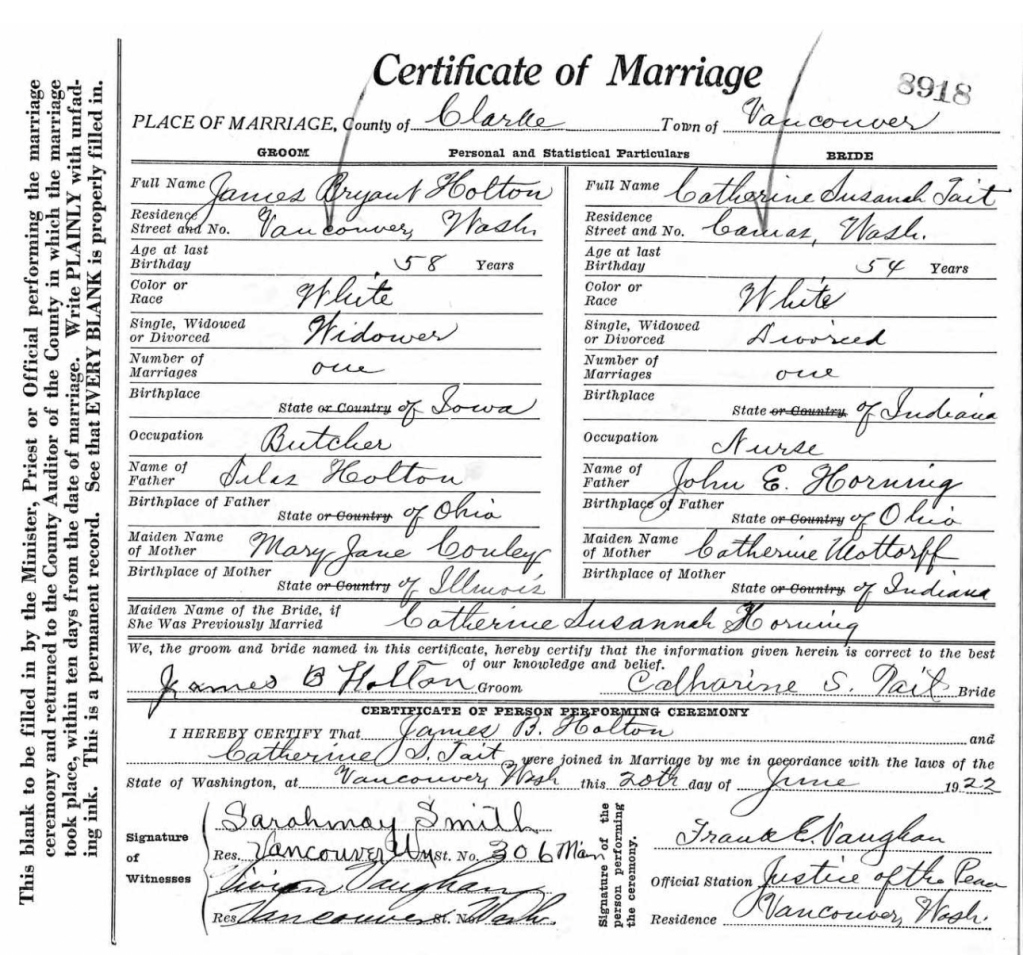 This blank to be filled in by the Minister, Priest or Official performing the marriage
ceremony and returned to the County Auditor of the County in which the marriage
took place, within ten days from the date of marriage. Write PLAINLY with unfad-
ing ink. This is a permanent record. See that EVERY BLANK is properly filled in.
Certificate of Marriage
8918
PLACE OF MARRIAGE, County of Clarke Town of Vancouver
GROOM Personal and Statistical Particulars BRIDE
Full Name James Bryant Holton
Residence
Street and No. Vancouver, Wash.
Age at last
Birthday 58 Years
Color or
Race White
Single, Widowed
or Divorced Widower
Number of
Marriages one
Birthplace
State or Country of Iowa
Occupation Butcher
Name of
Father Silas Holton
Birthplace of Father
State or Country of Ohio
Maiden Name
of Mother Mary Jane Conley
Birthplace of Mother
State or Country of Illinois
Full Name Catherine Susanah Tait
Residence
Street and No. Camas, Wash.
Age at last
Birthday 54 Years
Color or
Race White
Single, Widowed
or Divorced Divorced
Number of
Marriages one
Birthplace
State or Country of Indiana
Occupation Nurse
Name of
Father John E. Horning
Birthplace of Father
State or Country of Ohio
Maiden Name
of Mother Catherine Mottorff
Birthplace of Mother
State or Country of Indiana
Maiden Name of the Bride, if
She Was Previously Married Catherine Susannah Horning
We, the groom and bride named in this certificate, hereby certify that the information given herein is correct to the best
of our knowledge and belief.
James B Holton Groom Catharine S. Tait Bride
CERTIFICATE OF PERSON PERFORMING CEREMONY
I HEREBY CERTIFY That James B. Holton and
Catherine S. Tait, were joined in Marriage by me in accordance with the laws of the
State of Washington, at Vancouver, Wash this 20th day of June 1922
Signature
of
Witnesses
Sarahmay Smith
Res. Vancouver Wn St. No. 306 Main
Vivian Vaughan
Res. Vancouver St. No. Wash.
Signature of the
person performing
the ceremony.
Frank E. Vaughan
Official Station Justice of the Peace
Residence Vancouver, Wash.